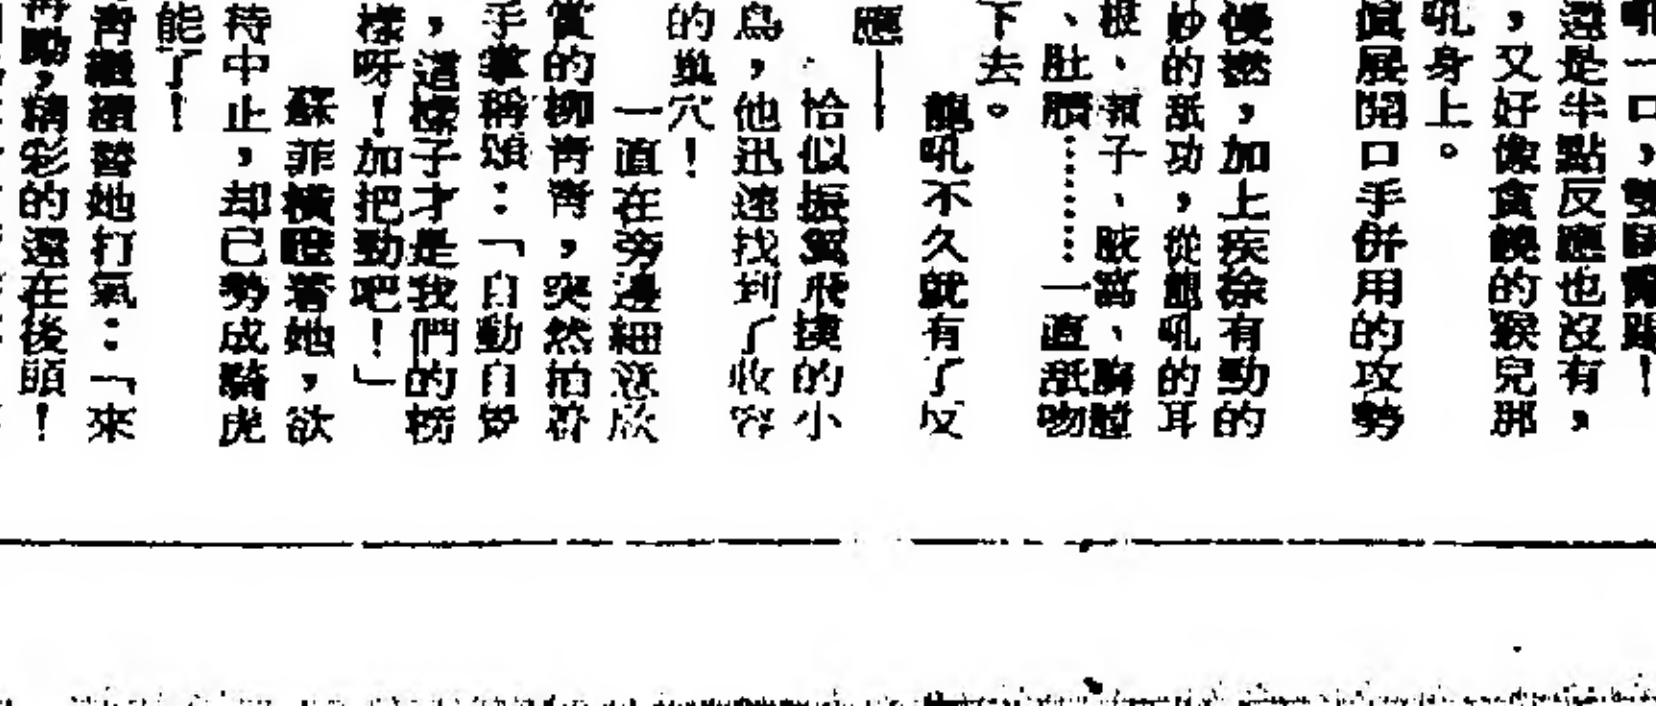 吼一口，雙
還是半點反應也沒有，
，又好像貪饞的猴兒那
吼身上。
眞展開口手併用的攻勢
慢撚，加上疾徐有勁的
妙的舐功，從龍吼的耳
根、頸子、腋窩、胸膛
、肚臍……一直舐吻
下去。
龍吼不久就有了反
應——
恰似振翼飛撲的小
鳥，他迅速找到了收容
的巢穴！
一直在旁邊細意欣
賞的柳靑靑，突然拍着
手掌稱頌：「自動自發
，這樣子才是我們的榜
樣呀！加把勁吧！」
蘇菲橫瞪着她，欲
待中止，却已勢成騎虎
能了！
靑繼續替她打氣：「來
再動，精彩的還在後頭！